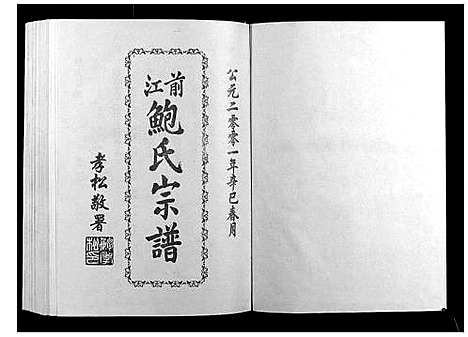 公元二零零一年辛巳春月
前江
鮑氏宗譜
孝松敬署